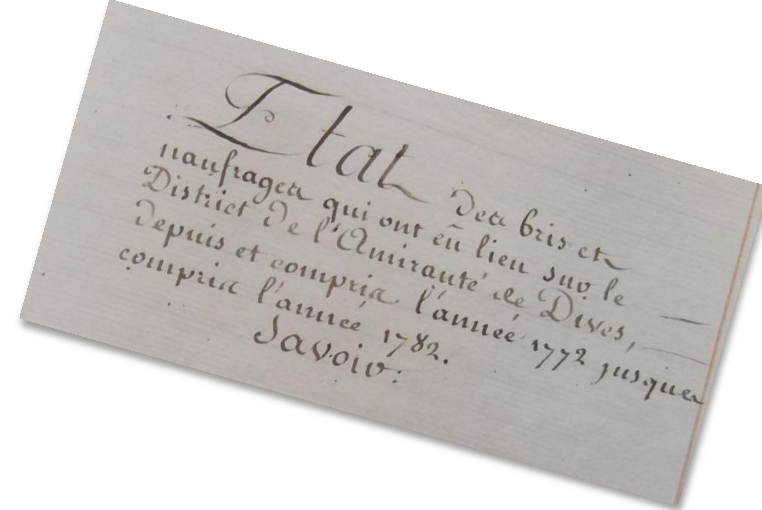 Etat des bris et
naufrages qui ont eû lieu sur le
District de l'Amirauté de Dives,
depuis et compris l'année 1772 jusques
compris l'année 1782.
Savoir: